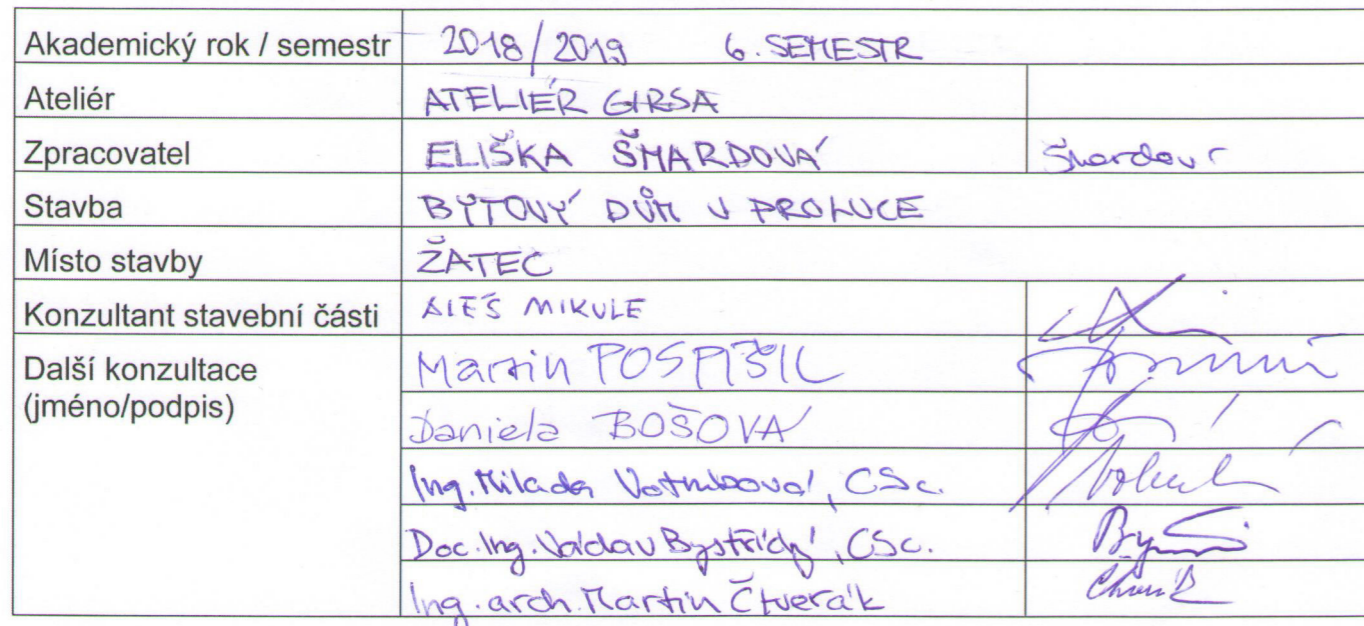 Akademický rok / semestr 2018/2019 6. SEMESTR
Ateliér ATELIÉR GIRSA
Zpracovatel ELIŠKA ŠMARDOVÁ
Stavba BYTOVÝ DŮM V PROLUCE
Místo stavby ŽATEC
Konzultant stavební části ALEŠ MIKULE
Další konzultace Martin POSPÍŠIL
(jméno/podpis) Daniela BOŠOVA
Ing. Milada Votrubová, CSc.
Doc. Ing. Václav Bystřický, CSc.
Ing. arch. Martin Čtverák